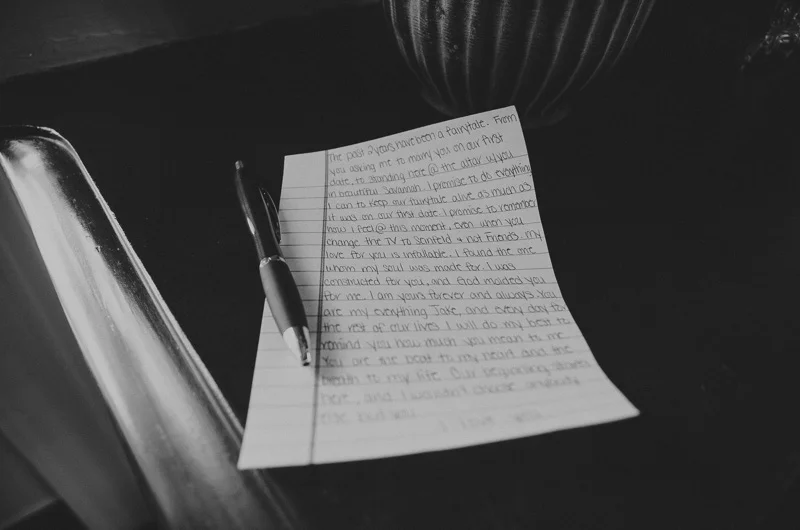 The past 2 years have been a fairytale. From
you asking me to marry you on our first
date, to standing here @ the altar w/you
in beautiful Savannah. I promise to do everything
I can to keep our fairytale alive as much as
it was on our first date. I promise to remember
how I feel @ this moment, even when you
change the TV to Seinfeld & not Friends. My
love for you is infallable. I found the one
whom my soul was made for. I was
constructed for you, and God molded you
for me. I am yours forever and always. You
are my everything Jake, and every day for
the rest of our lives I will do my best to
remind you how much you mean to me.
You are the beat to my heart and the
breath to my life. Our beginning starts
here, and I wouldn't choose anybody
else but you.
I love you